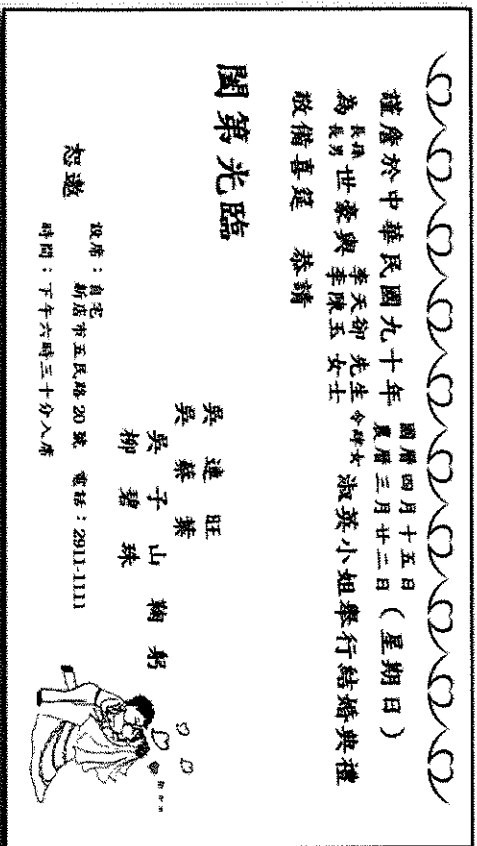 謹詹於中華民國九十年 國曆四月十五日 農曆三月廿二日（星期日）
為 長孫 長男 世豪與 李天卻 先生 李陳玉 女士 令 女 淑英小姐舉行結婚典禮
敬備喜筵 恭請
闔第光臨
吳連旺
吳蔡葉
吳子山 鞠躬
柳碧珠
恕邀
設席：自宅
新店市五民路20號 電話：2911-1111
時間：下午六時三十分入席